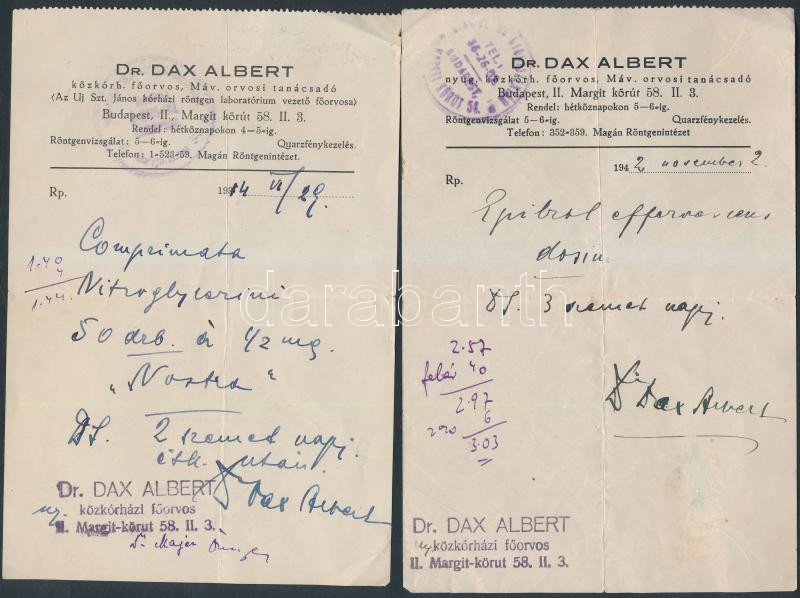 DR. DAX ALBERT
közkórh. főorvos, Máv. orvosi tanácsadó
(Az Uj Szt. János kórházi röntgen laboratórium vezető főorvosa)
Budapest, II., Margit körút 58. II. 3.
Rendel: hétköznapokon 4—5-ig.
Röntgenvizsgálat: 5—6-ig. Quarzfénykezelés.
Telefon: 1-523-59. Magán Röntgenintézet.
Rp. 44 VI/29.
Comprimata
1.40
4
1.44.
Nitroglycerini
50 drb. à 1/2 mg.
"Nostra"
DS. 2 szemet napj.
étk. után.
Dr Dax Albert
Dr. DAX ALBERT
ny. közkórházi főorvos
II. Margit-körut 58. II. 3.
Dr. Majer
DR. DAX ALBERT
nyug. közkórh. főorvos, Máv. orvosi tanácsadó
Budapest, II. Margit körút 58. II. 3.
Rendel: hétköznapokon 5—6-ig.
Röntgenvizsgálat 5—6-ig. Quarzfénykezelés.
Telefon: 352-359. Magán Röntgenintézet.
TEL.:
BUDAPEST,
KÖRUT 58.
1942 november 2.
Rp.
Epibrol effervescens
dosin
DS. 3 szemet napj.
2.57
felár 40
2.97
6
3.03
Dr Dax Albert
Dr. DAX ALBERT
ny közkórházi főorvos
II. Margit-körut 58. II. 3.
darabanth